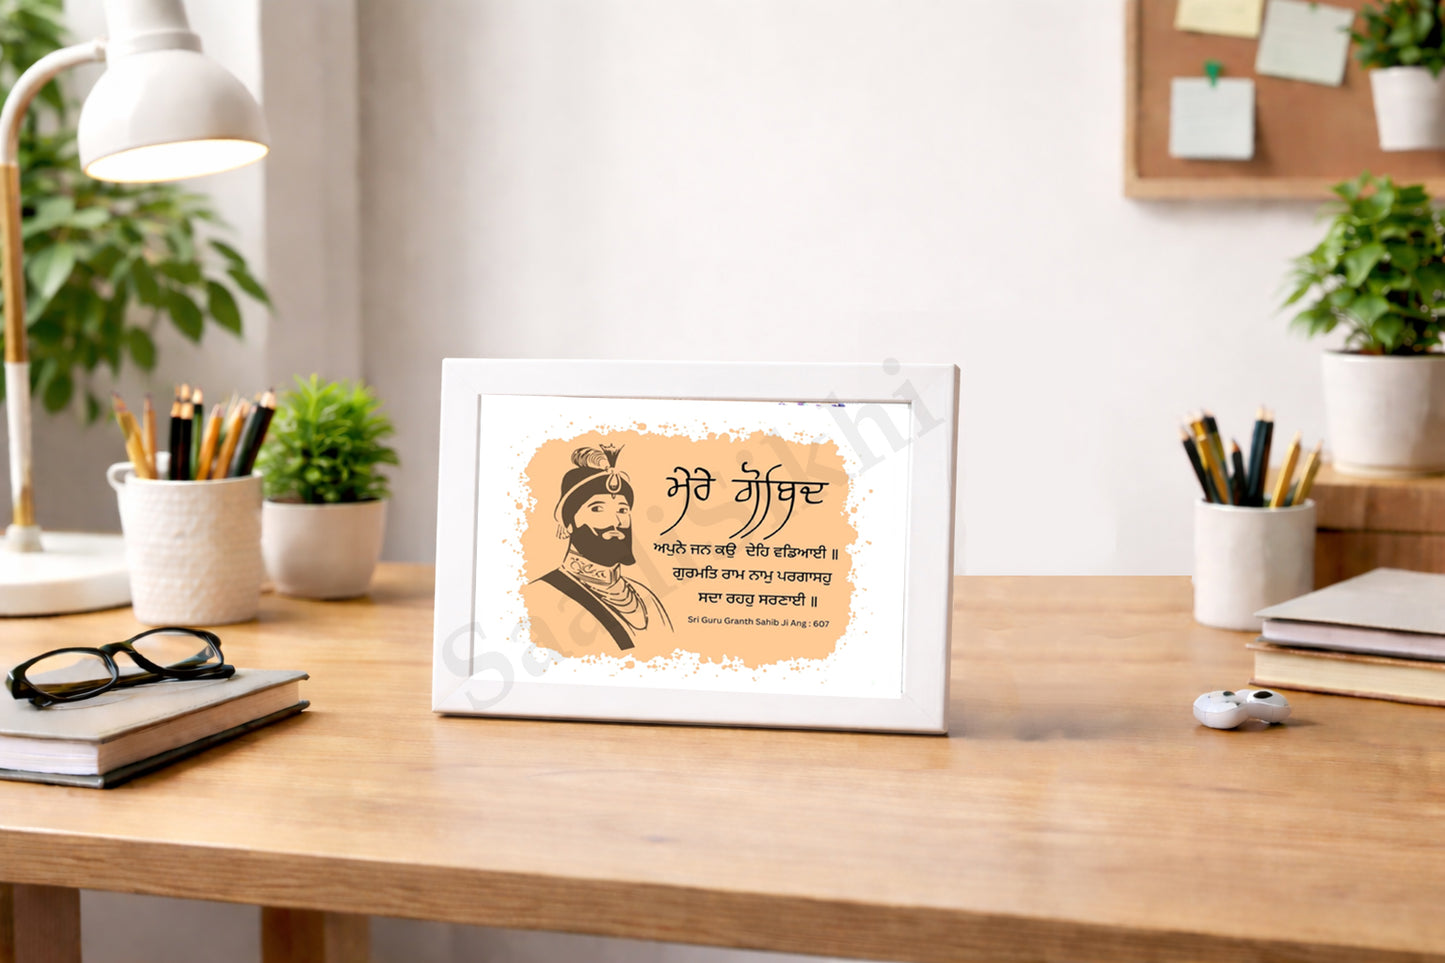 ਮੇਰੇ ਗੋਬਿਦ
ਅਪੁਨੇ ਜਨ ਕਉ ਦੇਹਿ ਵਡਿਆਈ ॥
ਗੁਰਮਤਿ ਰਾਮ ਨਾਮੁ ਪਰਗਾਸਹੁ
ਸਦਾ ਰਹਹੁ ਸਰਣਾਈ ॥
Sri Guru Granth Sahib Ji Ang : 607